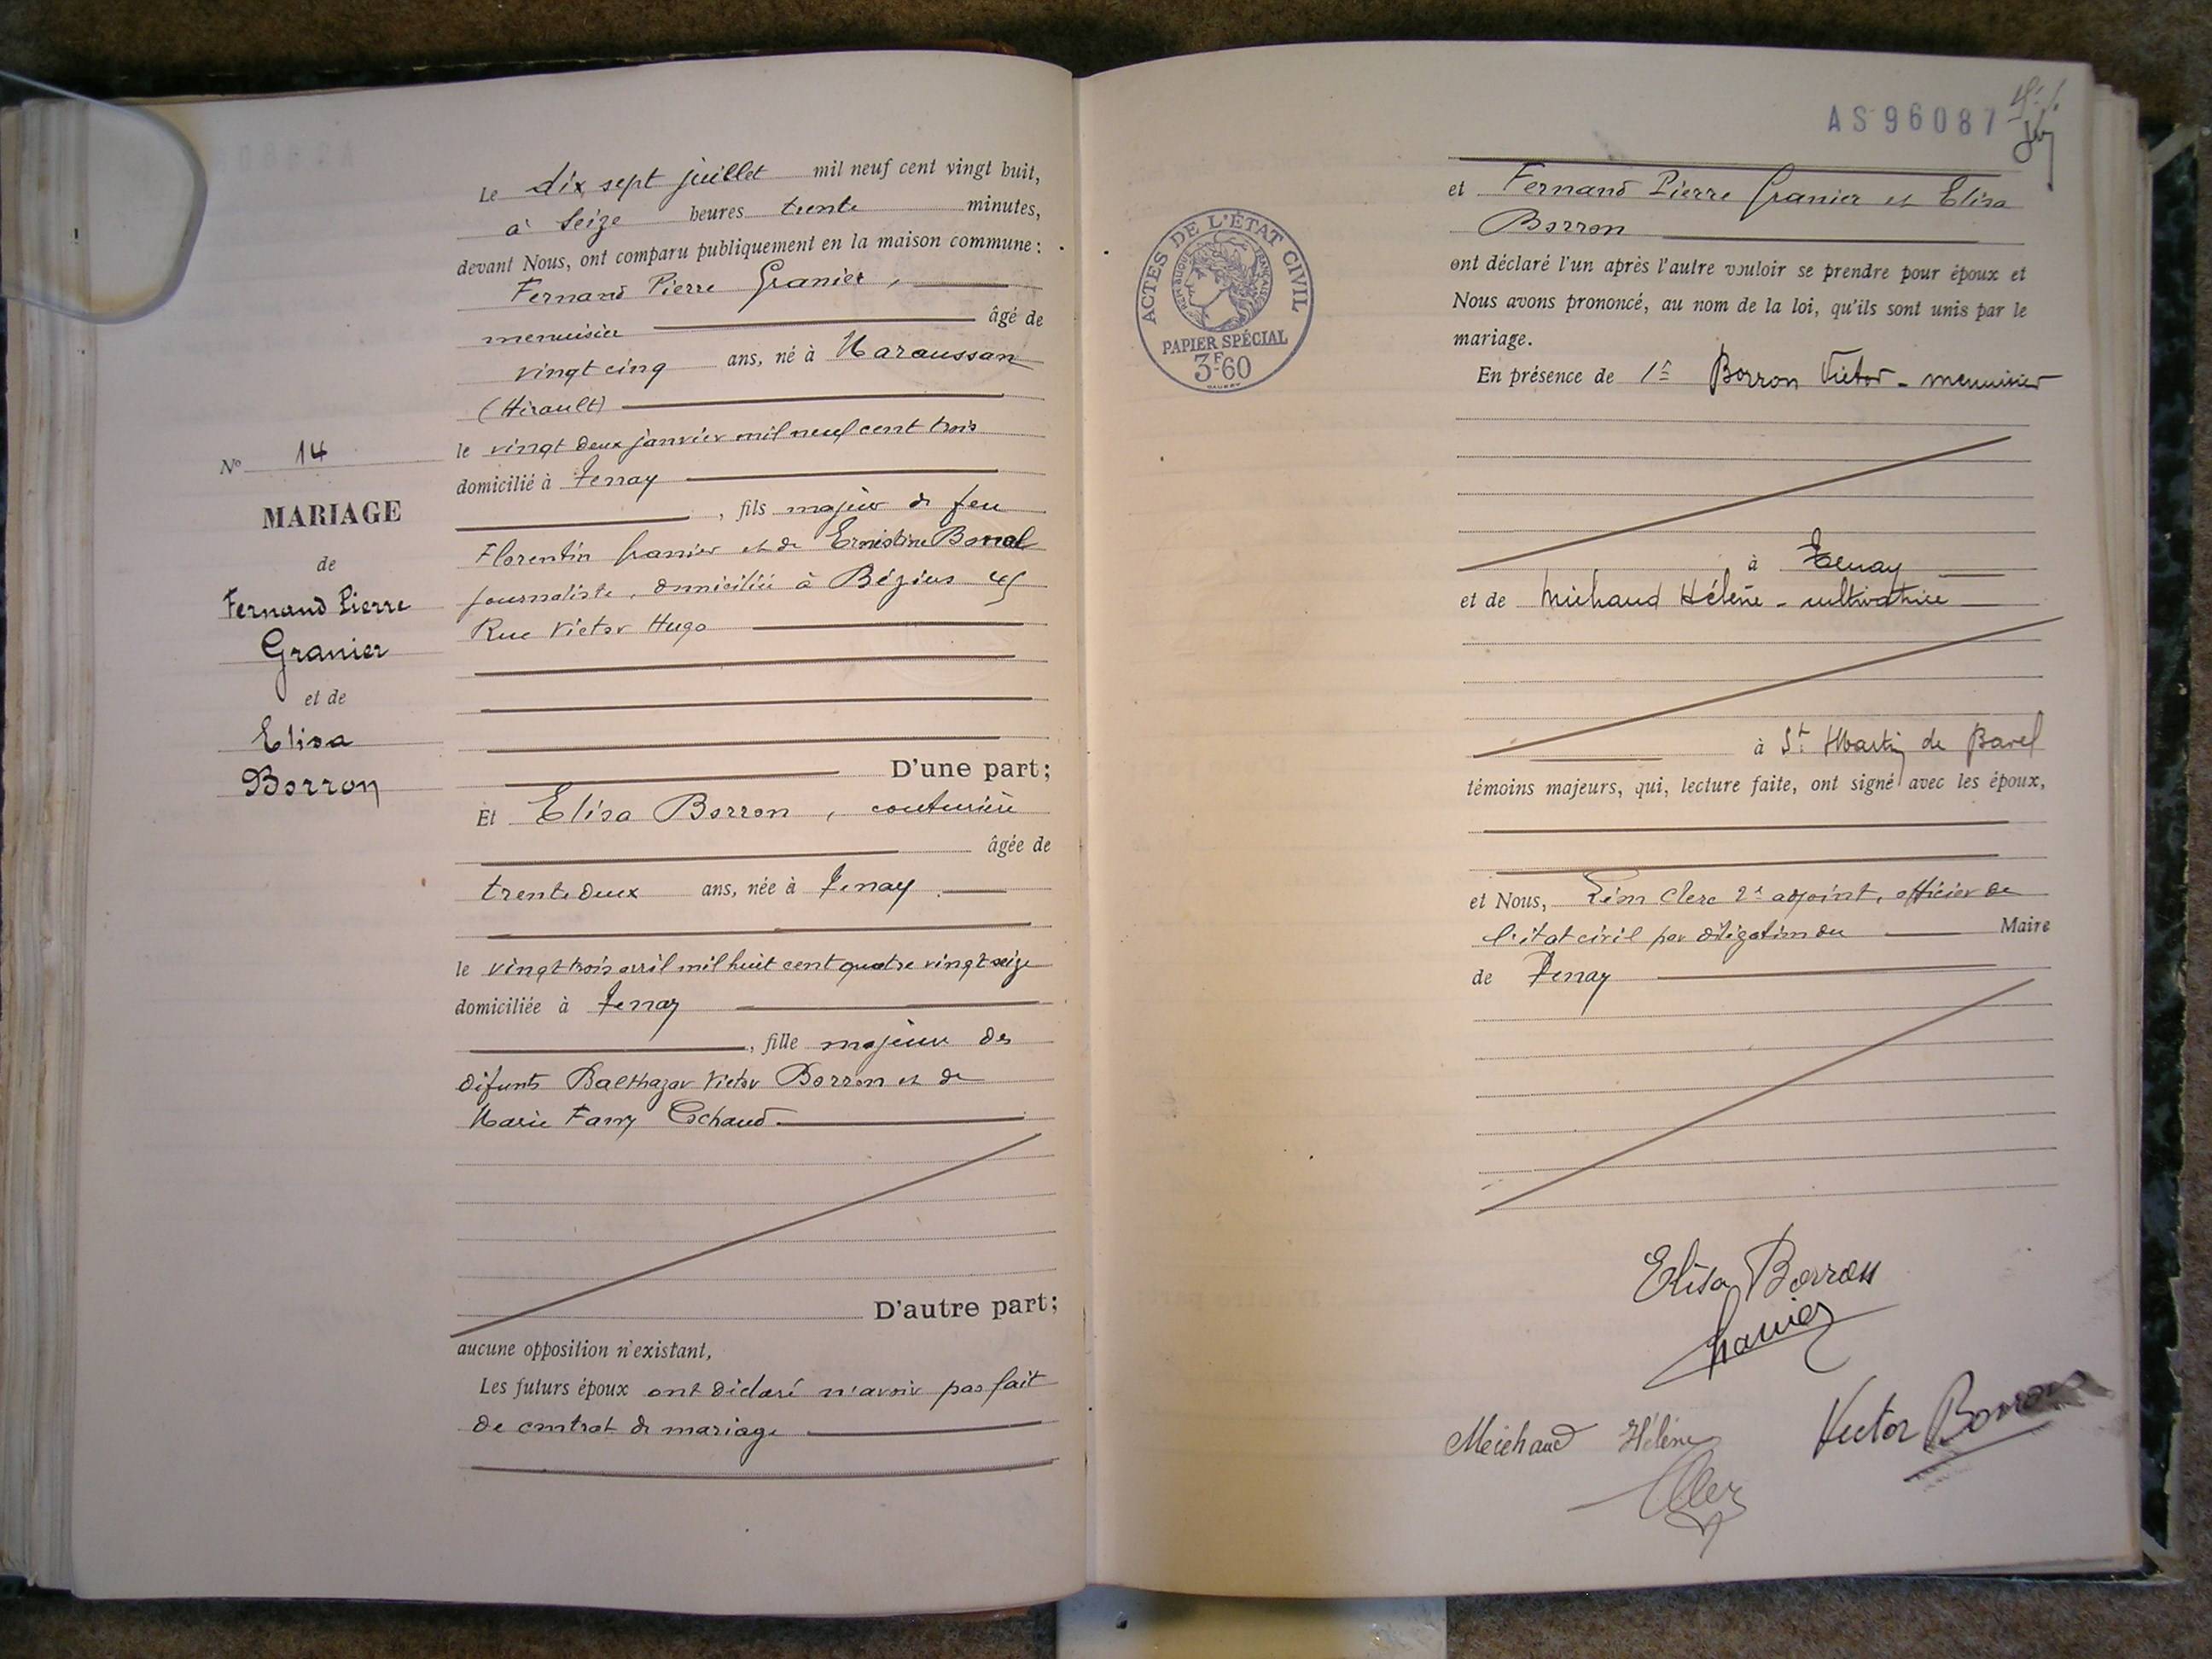 Le dix sept juillet mil neuf cent vingt huit,
à seize heures trente minutes,
devant Nous, ont comparu publiquement en la maison commune :
Fernand Pierre Granier,
menuisier âgé de
vingt cinq ans, né à Maraussan
(Hérault)
le vingt deux janvier mil neuf cent trois
domicilié à Tenay
, fils majeur de feu
Florentin Granier et de Ernestine Bonal
journaliste, domiciliée à Béziers 45
Rue Victor Hugo
D'une part;
Nº 14
MARIAGE
de
Fernand Pierre
Granier
et de
Elisa
Borron
Et Elisa Borron, couturière
âgée de
trente deux ans, née à Tenay
le vingt trois avril mil huit cent quatre vingt seize
domiciliée à Tenay
, fille majeure des
défunts Balthazar Victor Borron et de
Marie Fany Cochaud
D'autre part;
aucune opposition n'existant,
Les futurs époux ont déclaré n'avoir pas fait
de contrat de mariage
AS96087
ACTES DE L'ÉTAT CIVIL
RÉPUBLIQUE FRANÇAISE
PAPIER SPÉCIAL
3F60
et Fernand Pierre Granier et Elisa
Borron
ont déclaré l'un après l'autre vouloir se prendre pour époux et
Nous avons prononcé, au nom de la loi, qu'ils sont unis par le
mariage.
En présence de 1º Borron Victor - menuisier
à Tenay
et de Michaud Hélène - cultivatrice
à St Martin de Bavel
témoins majeurs, qui, lecture faite, ont signé avec les époux,
et Nous, Léon Clerc 2e adjoint, officier de
l'état civil par délégation du Maire
de Tenay
Elisa Borron
Granier
Meichaud Hélène
Victor Borron
Clerc